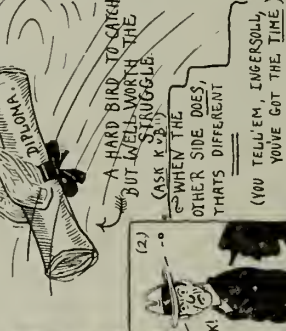 DIPLOMA.
A HARD BIRD TO CATCH
BUT WELL WORTH THE
STRUGGLE.
(ASK K.v.B.")
WHEN THE
OTHER SIDE DOES,
THATS DIFFERENT
(YOU TELL'EM, INGERSOLL,
YOU'VE GOT THE TIME)
(2.)